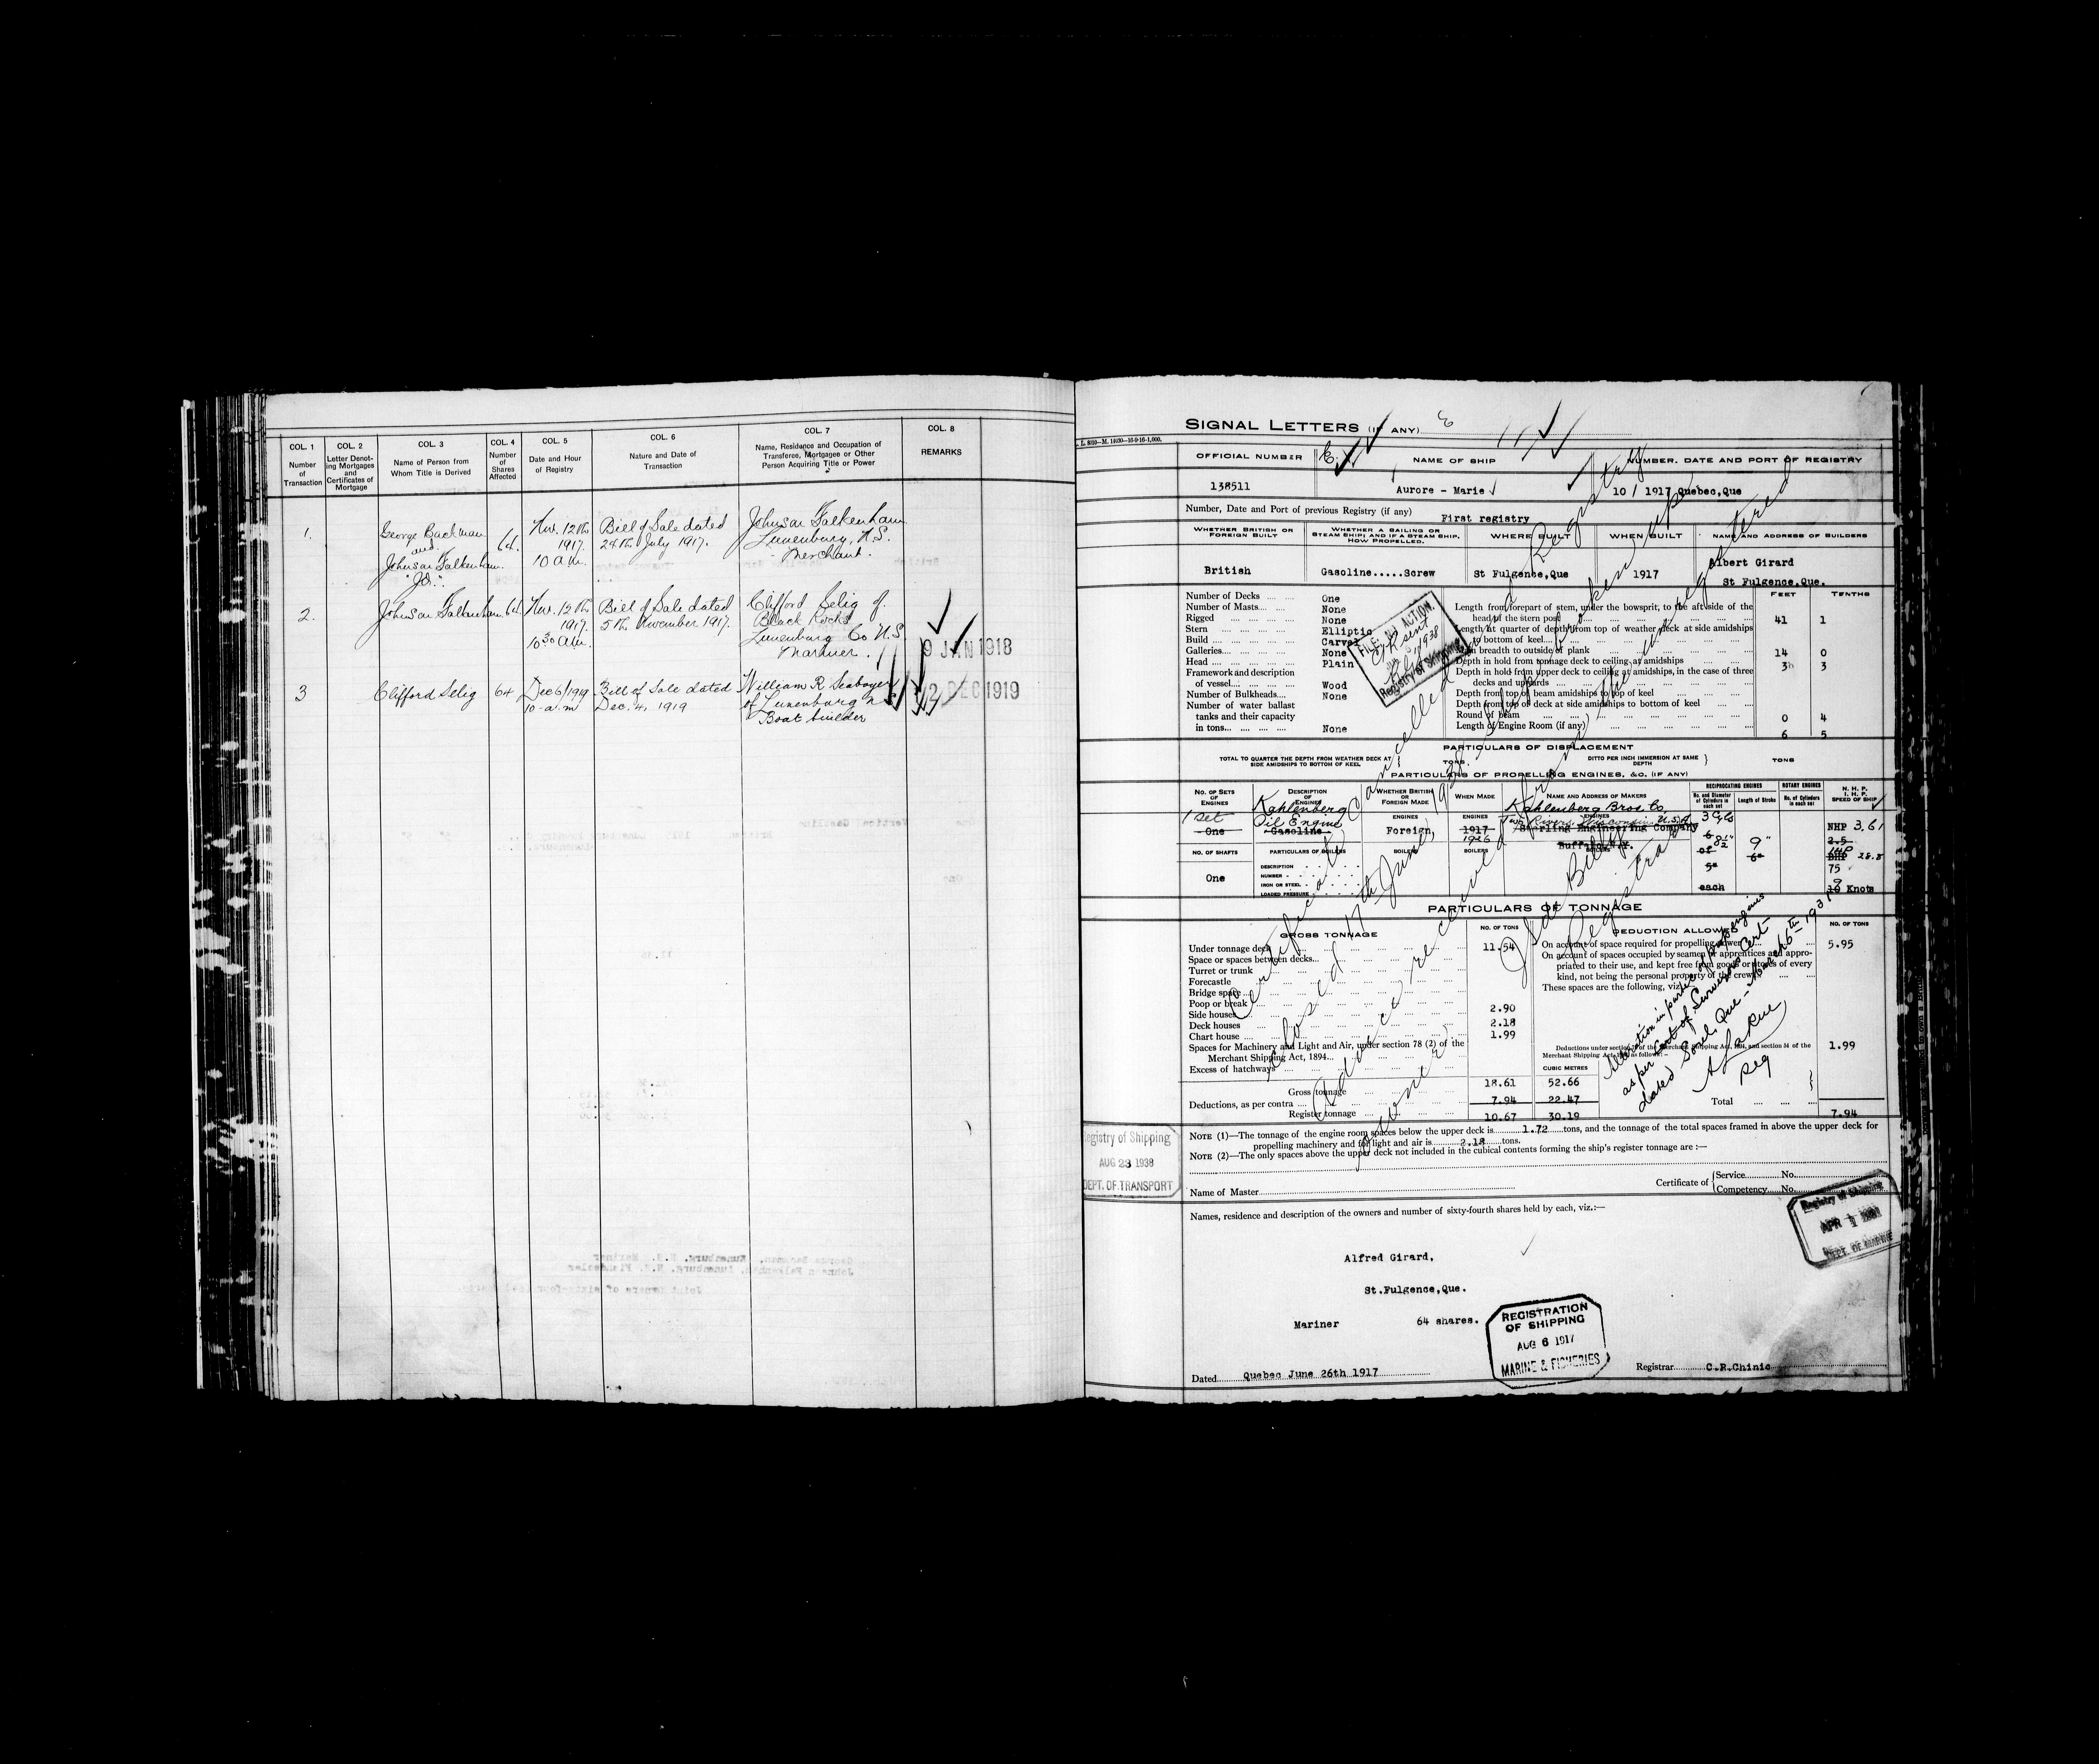 COL. 1
Number
of
Transaction
COL. 2
Letter Denot-
ing Mortgages
and
Certificates of
Mortgage
COL. 3
Name of Person from
Whom Title is Derived
COL. 4
Number
of
Shares
Affected
COL. 5
Date and Hour
of Registry
COL. 6
Nature and Date of
Transaction
COL. 7
Name, Residence and Occupation of
Transferee, Mortgagee or Other
Person Acquiring Title or Power
COL. 8
REMARKS
1.
George Backman
and
Johnson Falkenham
"JO".
64.
Nov. 12th
1917.
10 a.m.
Bill of Sale dated
24th July 1917.
Johnson Falkenham
Lunenburg, N.S.
- Merchant.
2.
Johnson Falkenham
64.
Nov. 12th
1917.
10 30 a.m.
Bill of Sale dated
5th November 1917.
Clifford Selig of
Black Rocks
Lunenburg Co N.S.
Mariner.
9 JAN 1918
3
Clifford Selig
64
Dec 6/1919
10 - a.m
Bill of Sale dated
Dec. 4, 1919
William R Seaboyer
of Lunenburg N S
Boat builder
12 DEC 1919
SIGNAL LETTERS (IF ANY)
OFFICIAL NUMBER
NAME OF SHIP
NUMBER, DATE AND PORT OF REGISTRY
138511
Aurore - Marie
10 / 1917 Quebec,Que
Number, Date and Port of previous Registry (if any)
First registry
WHETHER BRITISH OR
FOREIGN BUILT
WHETHER A SAILING OR
STEAM SHIP; AND IF A STEAM SHIP,
HOW PROPELLED.
WHERE BUILT
WHEN BUILT
NAME AND ADDRESS OF BUILDERS
British
Gasoline.....Screw
St Fulgence,Que
1917
Albert Girard
St Fulgence,Que.
Number of Decks One
Number of Masts None
Rigged None
Stern Elliptic
Build Carvel
Galleries None
Head Plain
Framework and description
of vessel Wood
Number of Bulkheads None
Number of water ballast
tanks and their capacity
in tons None
FEET TENTHS
Length from forepart of stem, under the bowsprit, to the aft side of the
head of the stern post 41 1
Length at quarter of depth from top of weather deck at side amidships
to bottom of keel
Main breadth to outside of plank 14 0
Depth in hold from tonnage deck to ceiling at amidships 3 3
Depth in hold from upper deck to ceiling at amidships, in the case of three
decks and upwards
Depth from top of beam amidships to top of keel
Depth from top of deck at side amidships to bottom of keel
Round of beam 0 4
Length of Engine Room (if any) 6 5
Registry of Shipping
PARTICULARS OF DISPLACEMENT
TOTAL TO QUARTER THE DEPTH FROM WEATHER DECK AT
SIDE AMIDSHIPS TO BOTTOM OF KEEL
TONS.
DITTO PER INCH IMMERSION AT SAME
DEPTH
TONS
PARTICULARS OF PROPELLING ENGINES, &C. (IF ANY)
NO. OF SETS
OF
ENGINES
DESCRIPTION
OF
ENGINES
WHETHER BRITISH
OR
FOREIGN MADE
WHEN MADE
NAME AND ADDRESS OF MAKERS
RECIPROCATING ENGINES
No. and Diameter
of Cylinders in
each set
Length of Stroke
ROTARY ENGINES
No. of Cylinders
in each set
N. H. P.
I. H. P.
SPEED OF SHIP
1 set
One
Kahlenberg
Oil Engine
Gasoline
ENGINES
Foreign
ENGINES
1917
1926
Kahlenberg Bros. Co.
Two Rivers, Wisconsin U.S.A
Sterling Engineering Company
Buffalo, N.Y.
3 Cyls
6
8½"
of
5"
each
9"
6"
NHP 3.61
2.5
BHP 28.8
75
9
10 Knots
NO. OF SHAFTS
One
PARTICULARS OF BOILERS
BOILERS
BOILERS
DESCRIPTION
NUMBER
IRON OR STEEL
LOADED PRESSURE
PARTICULARS OF TONNAGE
GROSS TONNAGE
NO. OF TONS
DEDUCTION ALLOWED
NO. OF TONS
Under tonnage deck 11.54
Space or spaces between decks
Turret or trunk
Forecastle
Bridge space
Poop or break
Side houses 2.90
Deck houses 2.18
Chart house 1.99
Spaces for Machinery and Light and Air, under section 78 (2) of the
Merchant Shipping Act, 1894
Excess of hatchways
Gross tonnage 18.61 52.66
Deductions, as per contra 7.94 22.47
Register tonnage 10.67 30.19
CUBIC METRES
On account of space required for propelling power 5.95
On account of spaces occupied by seamen or apprentices and appro-
priated to their use, and kept free from goods or stores of every
kind, not being the personal property of the crew
These spaces are the following, viz.
1.99
Total 7.94
Certificate Cancelled & Registry
closed 17th June, 1938. Ship broken up.
Advice received from the registered
owner.
Registrar
Alteration in partics of prop. engines
as per Cert. of Surveyors Cert-
dated Sorel, Que - March 6th 1931
Reg
NOTE (1)—The tonnage of the engine room spaces below the upper deck is 1.72 tons, and the tonnage of the total spaces framed in above the upper deck for
propelling machinery and for light and air is 2.18 tons.
NOTE (2)—The only spaces above the upper deck not included in the cubical contents forming the ship's register tonnage are :—
Registry of Shipping
AUG 23 1938
DEPT. OF TRANSPORT
Name of Master
Certificate of
Service No.
Competency No.
Registry of Shipping
APR 1 1931
DEPT. OF MARINE
Names, residence and description of the owners and number of sixty-fourth shares held by each, viz.:—
Alfred Girard,
St.Fulgence,Que.
Mariner 64 shares.
REGISTRATION
OF SHIPPING
AUG 6 1917
MARINE & FISHERIES
Dated Quebec June 26th 1917
Registrar C.R.Chinic